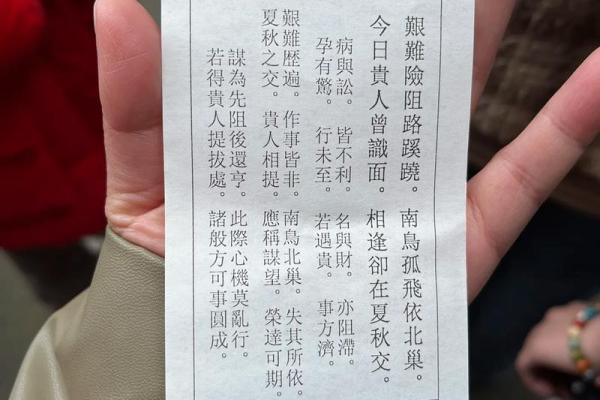 艱難險阻路蹊蹺。南鳥孤飛依北巢。
今日貴人曾識面。相逢卻在夏秋交。
病與訟。皆不利。名與財。亦阻滯。
孕有驚。行未至。若遇貴。事方濟。
艱難歴遍。作事皆非。南鳥北巢。失其所依。
夏秋之交。貴人相提。應稱謀望。榮達可期。
謀為先阻後還亨。此際心機莫亂行。
若得貴人提拔處。諸般方可事圓成。